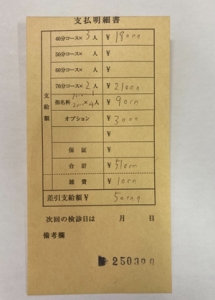 支払明細書
支給額
40分コース× 3人 ¥ 18000
50分コース× 人 ¥
70分コース× 2人 ¥ 21000
指名料 ¥ 9000
オプション ¥ 3000
¥
保証 ¥
合計 ¥ 51000
雑費 ¥ 1000
差引支給額 ¥ 50000
次回の検診日は 月 日
備考欄